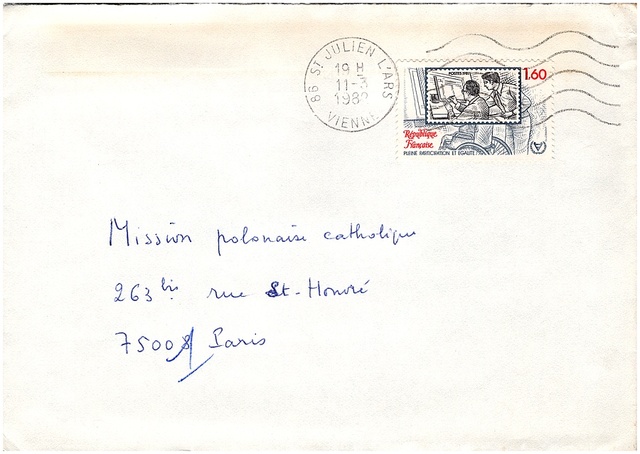 86 ST JULIEN L'ARS
19 H
11-3
1982
VIENNE
POSTES 1981
1.60
République
Française
PLEINE PARTICIPATION ET EGALITE
Mission polonaise catholique
263 bis rue St-Honoré
75008 Paris